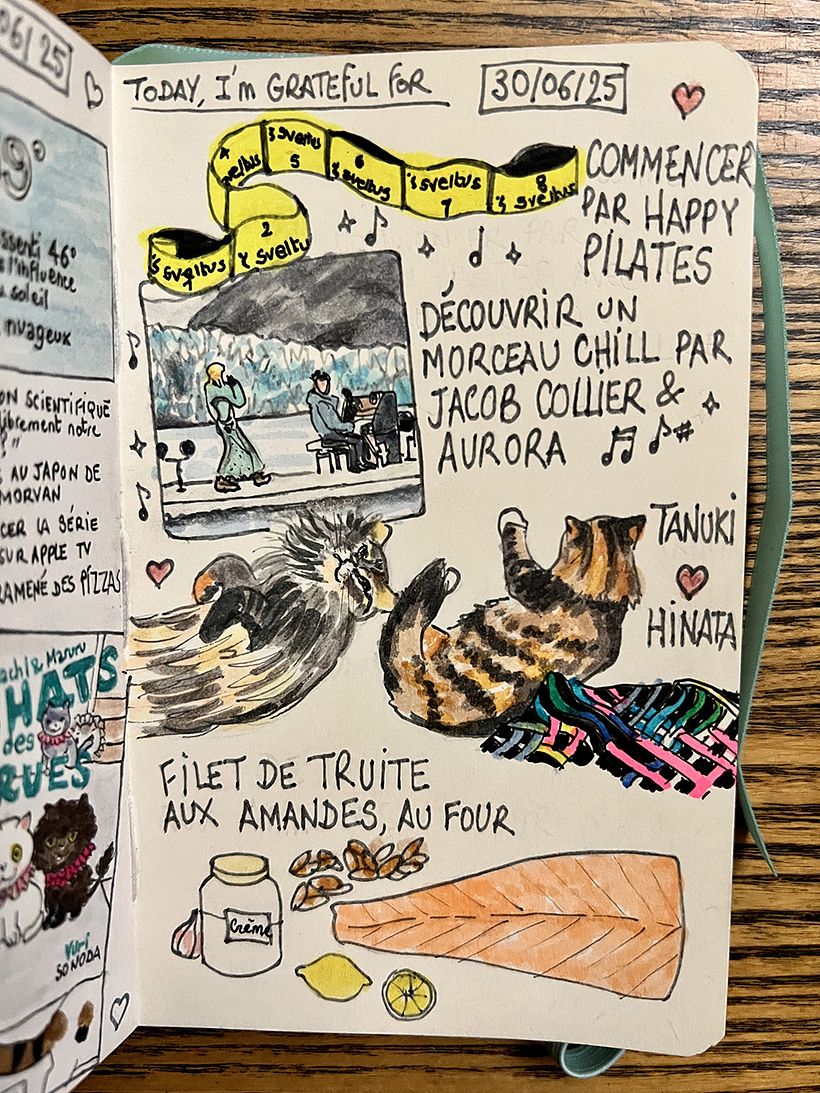 06/25
9°
ssenti 46°
l'influence
u soleil
nuageux
ON SCIENTIFIQUE
librement notre
?"
AU JAPON DE
MORVAN
CER LA SÉRIE
SUR APPLE TV
RAMENÉ DES PIZZAS
achi & Maruru
HATS
des
RUES
Yuri
SONODA
TODAY, I'm GRATEFUL FOR
30/06/25
4 sveltus
sveltus 5
6 sveltus
sveltus 7
8 sveltus
2 sveltu
sveltus
COMMENCER
PAR HAPPY
PILATES
DÉCOUVRIR UN
MORCEAU CHILL PAR
JACOB COLLIER &
AURORA
TANUKI
HINATA
FILET DE TRUITE
AUX AMANDES, AU FOUR
Crème